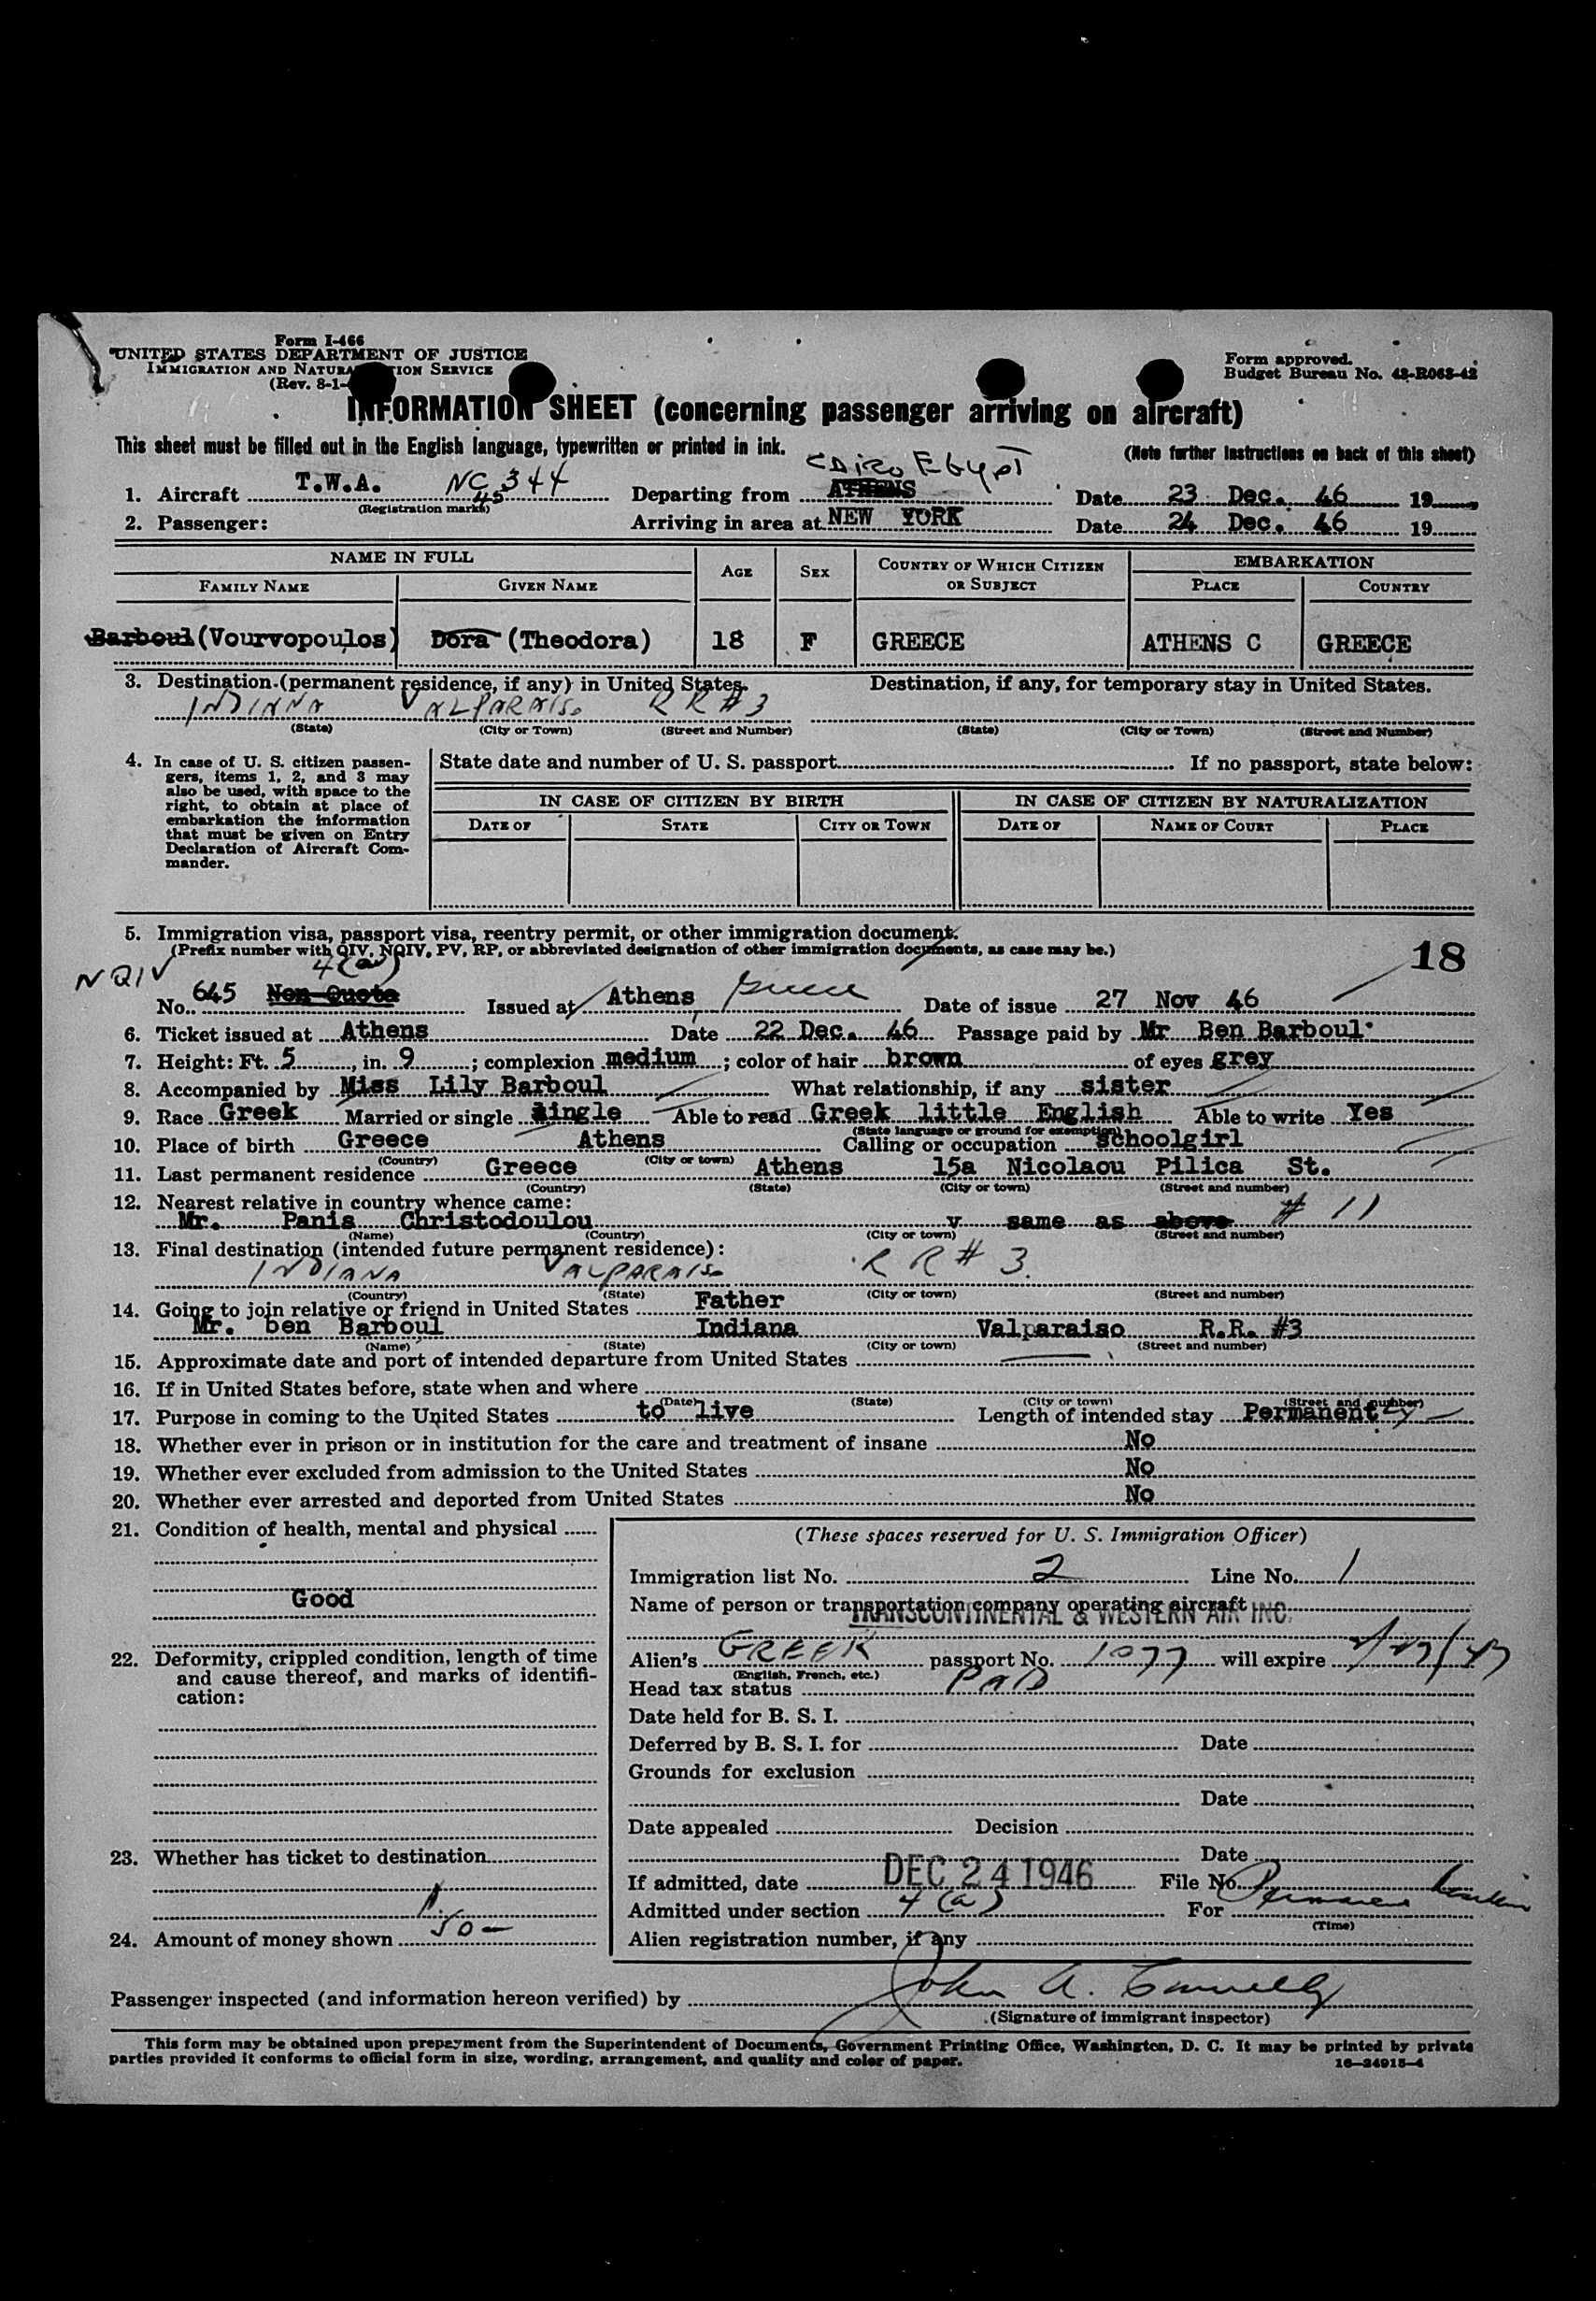 Form I-466
UNITED STATES DEPARTMENT OF JUSTICE
IMMIGRATION AND NATURALIZATION SERVICE
(Rev. 8-1-
Form approved.
Budget Bureau No. 43-R063-42
INFORMATION SHEET (concerning passenger arriving on aircraft)
This sheet must be filled out in the English language, typewritten or printed in ink.
(Note further instructions on back of this sheet)
CAIRO EGYPT
1. Aircraft T.W.A. NC 344 Departing from ATHENS Date 23 Dec. 46 19
45
(Registration marks)
2. Passenger: Arriving in area at NEW YORK Date 24 Dec. 46 19
NAME IN FULL AGE SEX COUNTRY OF WHICH CITIZEN OR SUBJECT EMBARKATION
FAMILY NAME GIVEN NAME PLACE COUNTRY
Barboul (Vourvopoulos) Dora (Theodora) 18 F GREECE ATHENS C GREECE
3. Destination (permanent residence, if any) in United States. Destination, if any, for temporary stay in United States.
INDIANA VALPARAISO RR#3
(State) (City or Town) (Street and Number) (State) (City or Town) (Street and Number)
4. In case of U. S. citizen passengers, items 1, 2, and 3 may also be used, with space to the right, to obtain at place of embarkation the information that must be given on Entry Declaration of Aircraft Commander.
State date and number of U. S. passport If no passport, state below:
IN CASE OF CITIZEN BY BIRTH IN CASE OF CITIZEN BY NATURALIZATION
DATE OF STATE CITY OR TOWN DATE OF NAME OF COURT PLACE
5. Immigration visa, passport visa, reentry permit, or other immigration document.
(Prefix number with QIV, NQIV, PV, RP, or abbreviated designation of other immigration documents, as case may be.)
18
NQIV 4(a)
No. 645 Non Quota Issued at Athens Greece Date of issue 27 Nov 46
6. Ticket issued at Athens Date 22 Dec. 46 Passage paid by Mr Ben Barboul
7. Height: Ft. 5, in. 9; complexion medium; color of hair brown of eyes grey
8. Accompanied by Miss Lily Barboul What relationship, if any sister
9. Race Greek Married or single single Able to read Greek little English Able to write Yes
(State language or ground for exemption)
10. Place of birth Greece Athens Calling or occupation schoolgirl
(Country) (City or town)
11. Last permanent residence Greece Athens 15a Nicolaou Pilica St.
(Country) (State) (City or town) (Street and number)
12. Nearest relative in country whence came:
Mr. Panis Christodoulou v same as above # 11
(Name) (Country) (City or town) (Street and number)
13. Final destination (intended future permanent residence):
INDIANA VALPARAISO RR# 3.
(Country) (State) (City or town) (Street and number)
14. Going to join relative or friend in United States Father
Mr. ben Barboul Indiana Valparaiso R.R. #3
(Name) (State) (City or town) (Street and number)
15. Approximate date and port of intended departure from United States
16. If in United States before, state when and where
(Date) (State) (City or town) (Street and number)
17. Purpose in coming to the United States to live Length of intended stay Permanently
18. Whether ever in prison or in institution for the care and treatment of insane No
19. Whether ever excluded from admission to the United States No
20. Whether ever arrested and deported from United States No
21. Condition of health, mental and physical
Good
22. Deformity, crippled condition, length of time and cause thereof, and marks of identification:
23. Whether has ticket to destination
24. Amount of money shown 50-
(These spaces reserved for U. S. Immigration Officer)
Immigration list No. 2 Line No. 1
Name of person or transportation company operating aircraft
TRANSCONTINENTAL & WESTERN AIR INC.
Alien's GREEK passport No. 1077 will expire
(English, French, etc.)
Head tax status PAID
Date held for B. S. I.
Deferred by B. S. I. for Date
Grounds for exclusion
Date
Date appealed Decision
Date
If admitted, date DEC 24 1946 File No.
Admitted under section 4(a) For
(Time)
Alien registration number, if any
Passenger inspected (and information hereon verified) by John A.
(Signature of immigrant inspector)
This form may be obtained upon prepayment from the Superintendent of Documents, Government Printing Office, Washington, D. C. It may be printed by private
parties provided it conforms to official form in size, wording, arrangement, and quality and color of paper.
16-24915-4